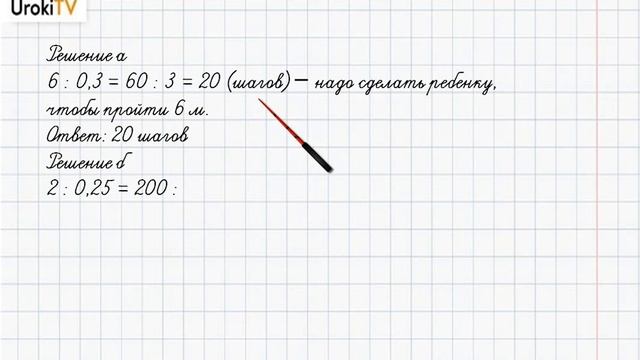 UrokiTV
Решение а
6 : 0,3 = 60 : 3 = 20 (шагов) – надо сделать ребенку,
чтобы пройти 6 м.
Ответ: 20 шагов
Решение б
2 : 0,25 = 200 :